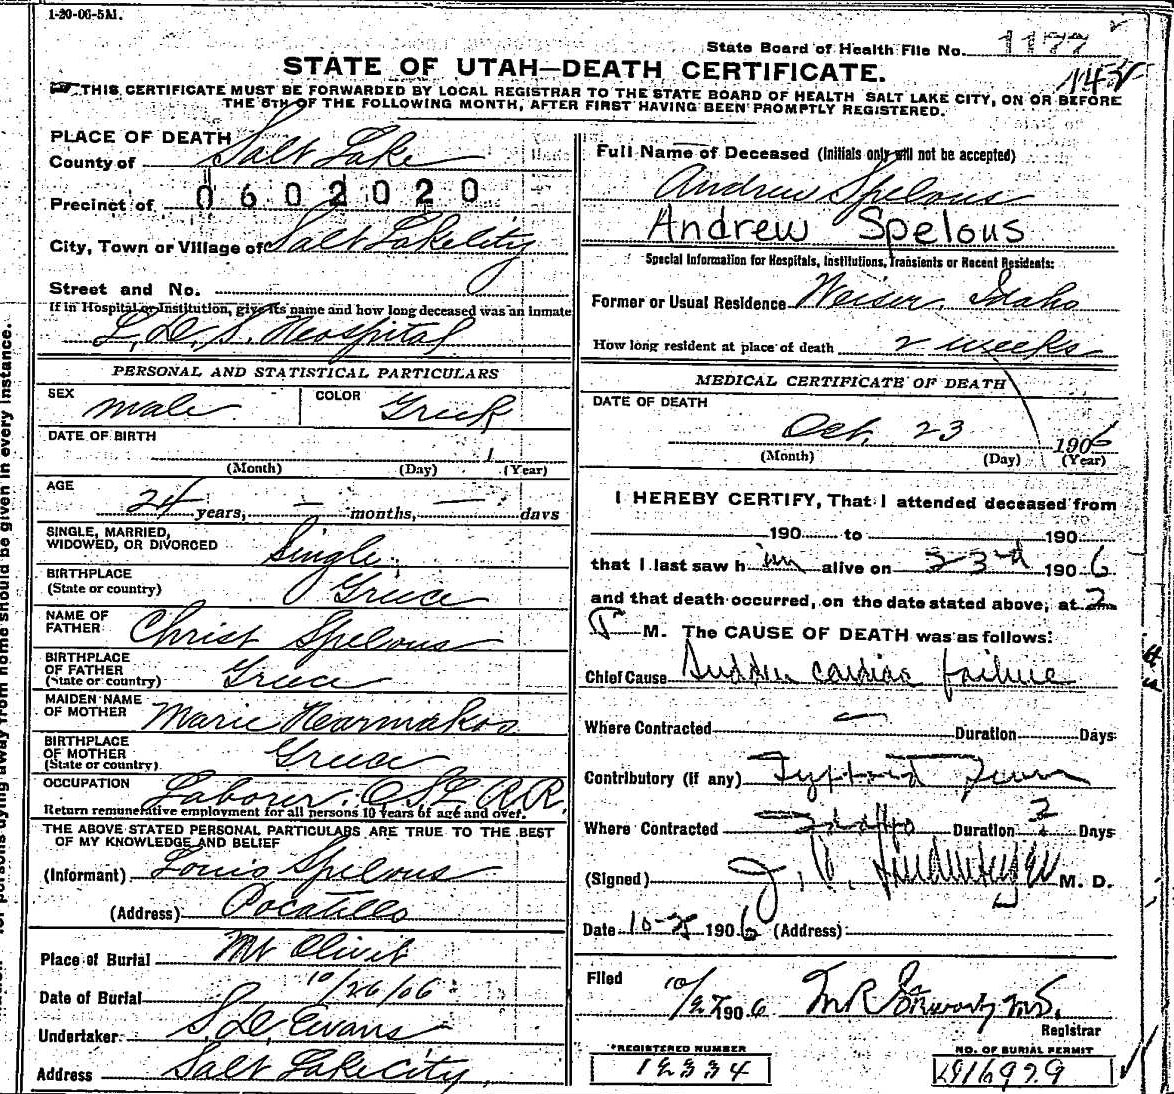 1-20-06-5M.
State Board of Health File No. 1177
STATE OF UTAH—DEATH CERTIFICATE.
THIS CERTIFICATE MUST BE FORWARDED BY LOCAL REGISTRAR TO THE STATE BOARD OF HEALTH SALT LAKE CITY, ON OR BEFORE
THE 5TH OF THE FOLLOWING MONTH, AFTER FIRST HAVING BEEN PROMPTLY REGISTERED.
PLACE OF DEATH
County of Salt Lake
Precinct of 0602020
City, Town or Village of Salt Lake City
Street and No.
If in Hospital or Institution, give its name and how long deceased was an inmate
L. D. S. Hospital
PERSONAL AND STATISTICAL PARTICULARS
SEX male COLOR Greek
DATE OF BIRTH
1
(Month) (Day) (Year)
AGE
24 years, — months, — days
SINGLE, MARRIED,
WIDOWED, OR DIVORCED Single
BIRTHPLACE
(State or country) Greece
NAME OF
FATHER Christ Spelous
BIRTHPLACE
OF FATHER
(State or country) Greece
MAIDEN NAME
OF MOTHER Marie
BIRTHPLACE
OF MOTHER
(State or country) Greece
OCCUPATION Laborer. O S L R.R.
Return remunerative employment for all persons 10 years of age and over.
THE ABOVE STATED PERSONAL PARTICULARS ARE TRUE TO THE BEST
OF MY KNOWLEDGE AND BELIEF
(Informant) Louis Spelous
(Address) Pocatello
Place of Burial Mt Olivit
Date of Burial 10/26/06
Undertaker S. D. Evans
Address Salt Lake City
Full Name of Deceased (Initials only will not be accepted)
Andrew Spelous
Andrew Spelous
Special Information for Hospitals, Institutions, Transients or Recent Residents:
Former or Usual Residence Weiser, Idaho
How long resident at place of death 2 weeks
MEDICAL CERTIFICATE OF DEATH
DATE OF DEATH
Oct. 23 1906
(Month) (Day) (Year)
I HEREBY CERTIFY, That I attended deceased from
190 to 190
that I last saw him alive on 23rd 1906
and that death occurred, on the date stated above, at 2
P M. The CAUSE OF DEATH was as follows:
Chief Cause Sudden cardiac failure
Where Contracted — Duration Days
Contributory (if any) Typhoid Fever
Where Contracted Idaho Duration Days
(Signed) M. D.
Date 10-25 1906 (Address)
Filed 10/27 1906 M R
Registrar
*REGISTERED NUMBER
12334
NO. OF BURIAL PERMIT
for persons dying away from home should be given in every instance.